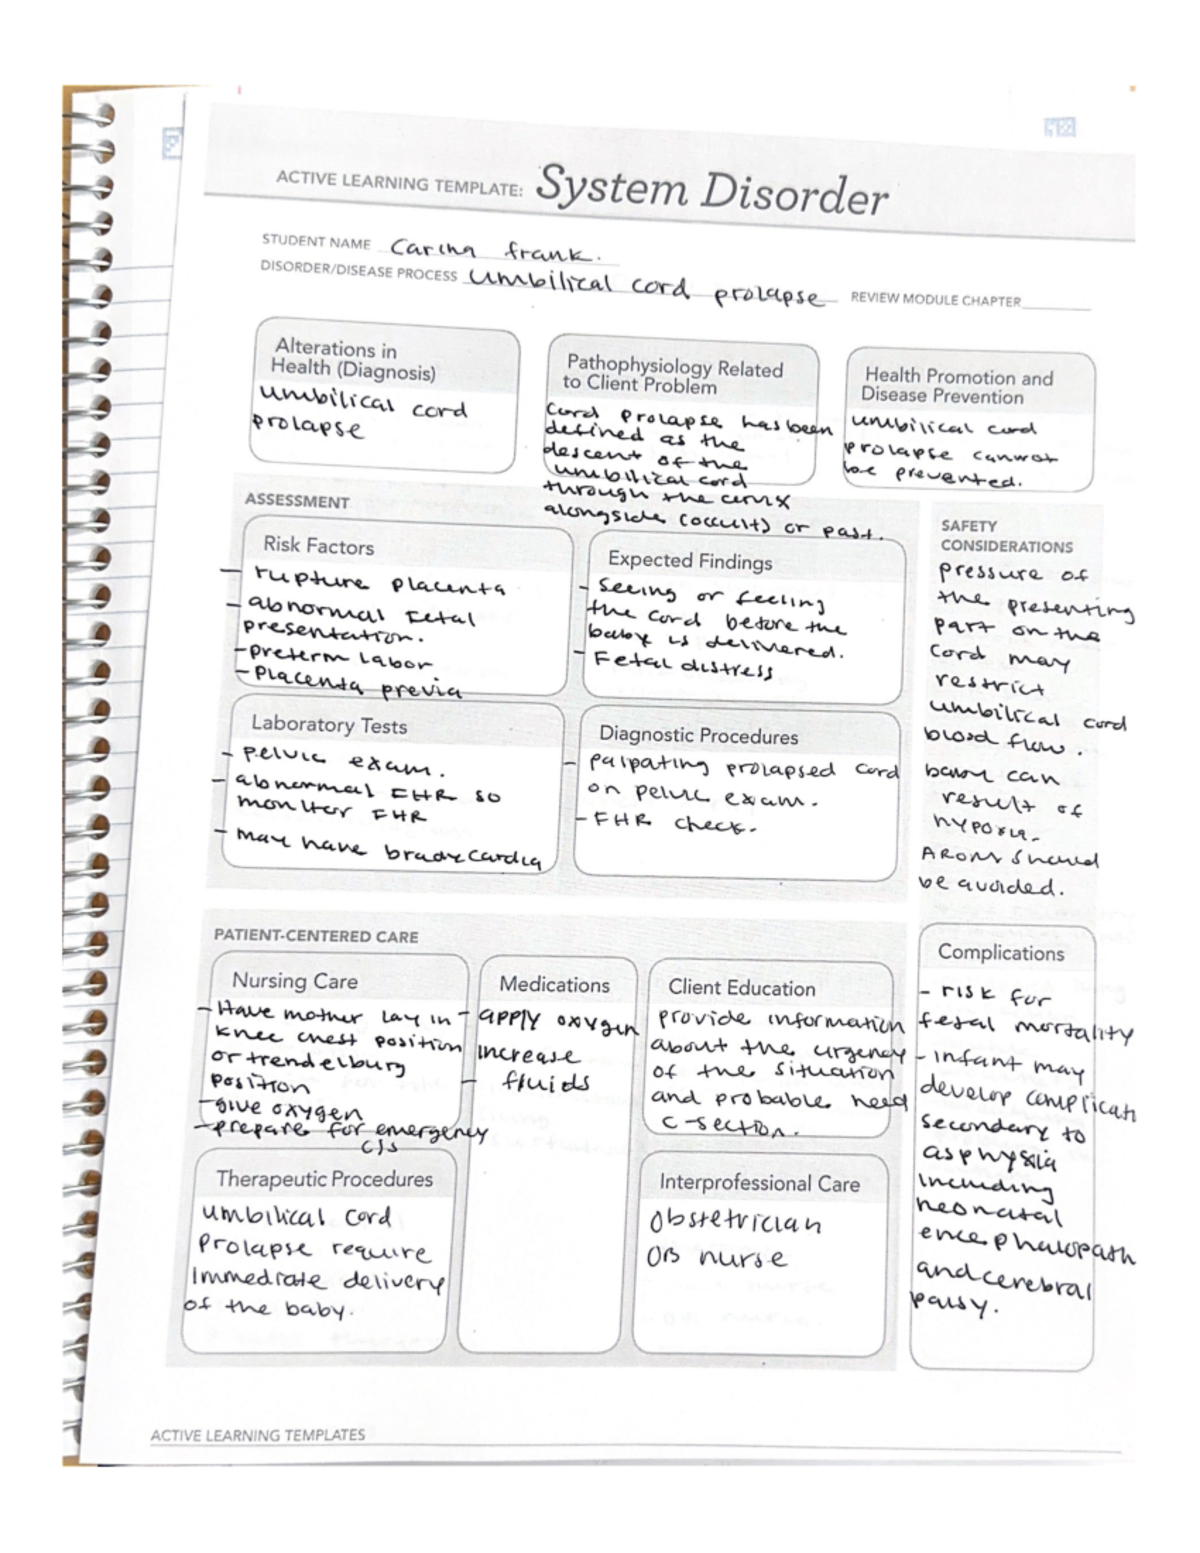 ACTIVE LEARNING TEMPLATE: System Disorder
STUDENT NAME Carina frank.
DISORDER/DISEASE PROCESS umbilical cord prolapse REVIEW MODULE CHAPTER
Alterations in
Health (Diagnosis)
umbilical cord
prolapse
Pathophysiology Related
to Client Problem
Cord prolapse has been
defined as the
descent of the
umbilical cord
through the cervix
alongside (occult) or past.
Health Promotion and
Disease Prevention
umbilical cord
prolapse cannot
be prevented.
ASSESSMENT
Risk Factors
- rupture placenta
- abnormal Fetal
presentation.
- preterm labor
- Placenta previa
Expected Findings
- Seeing or feeling
the cord before the
baby is delivered.
- Fetal distress
Laboratory Tests
- pelvic exam.
- abnormal FHR so
monitor FHR
- may have bradycardia
Diagnostic Procedures
- palpating prolapsed cord
on pelvic exam.
- FHR check.
SAFETY
CONSIDERATIONS
pressure of
the presenting
part on the
cord may
restrict
umbilical cord
blood flow.
baby can
result of
hypoxia.
AROM should
be avoided.
PATIENT-CENTERED CARE
Nursing Care
- Have mother lay in
knee chest position
or trendelburg
position
- give oxygen
- prepare for emergency
C/S
Medications
- apply oxygen
increase
- fluids
Client Education
provide information
about the urgency
of the situation
and probable need
C-section.
Complications
- risk for
fetal mortality
- infant may
develop complicati
secondary to
asphyxia
including
neonatal
encephalopath
and cerebral
palsy.
Therapeutic Procedures
umbilical cord
prolapse require
immediate delivery
of the baby.
Interprofessional Care
obstetrician
OB nurse
ACTIVE LEARNING TEMPLATES